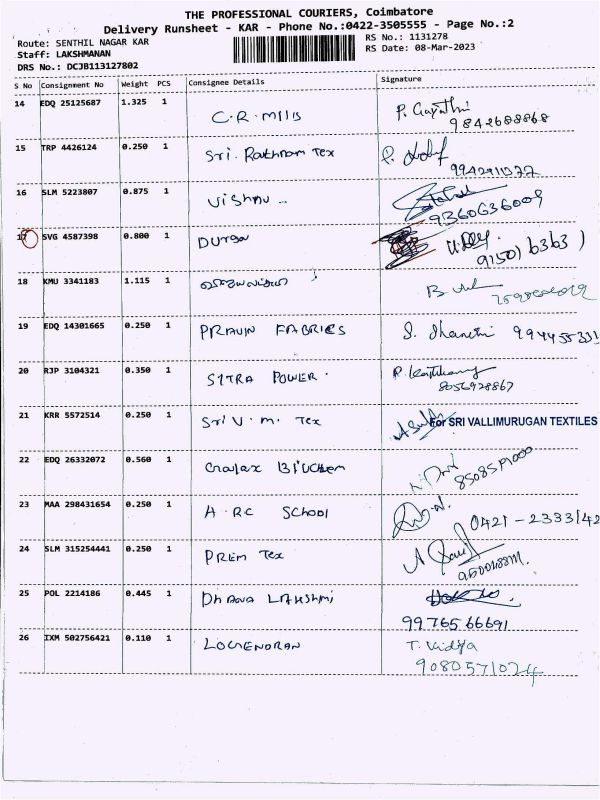 THE PROFESSIONAL COURIERS, Coimbatore
Delivery Runsheet - KAR - Phone No.:0422-3505555 - Page No.:2
Route: SENTHIL NAGAR KAR
RS No.: 1131278
Staff: LAKSHMANAN
RS Date: 08-Mar-2023
DRS No.: DCJB113127802
S No Consignment No Weight PCS Consignee Details Signature
14 EDQ 25125687 1.325 1 C.R. Mills P. Gayathri
9842688868
15 TRP 4426124 0.250 1 Sri. Rathnam Tex
16 SLM 5223807 0.875 1 Vishnu ..
9360636009
17 SVG 4587398 0.800 1 Durga
9150163631
18 KMU 3341183 1.115 1
19 EDQ 14301665 0.250 1 PRAVIN FABRICS S. Shanthi
20 RJP 3104321 0.350 1 SITRA POWER. P. Karthkamy
8056928867
21 KRR 5572514 0.250 1 Sri V. M. Tex For SRI VALLIMURUGAN TEXTILES
22 EDQ 26332072 0.560 1
23 MAA 298431654 0.250 1 A.R.C SCHOOL
0421-2333142
24 SLM 315254441 0.250 1 PREM Tex
25 POL 2214186 0.445 1 DHANA LAKSHMI
9976566691
26 IXM 502756421 0.110 1 LOGENDRAN T. Vidya
9080571024